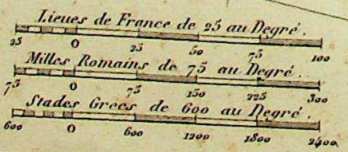 Lieues de France de 25 au Degré.
25 0 25 50 75 100
Milles Romains de 75 au Degré.
75 0 75 150 225 300
Stades Grecs de 600 au Degré.
600 0 600 1200 1800 2400